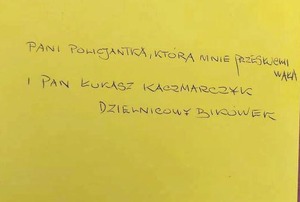 PANI POLICJANTKA, KTÓRA MNIE PRZESŁUCHI
WAŁA
I PAN ŁUKASZ KACZMARCZYK
DZIELNICOWY